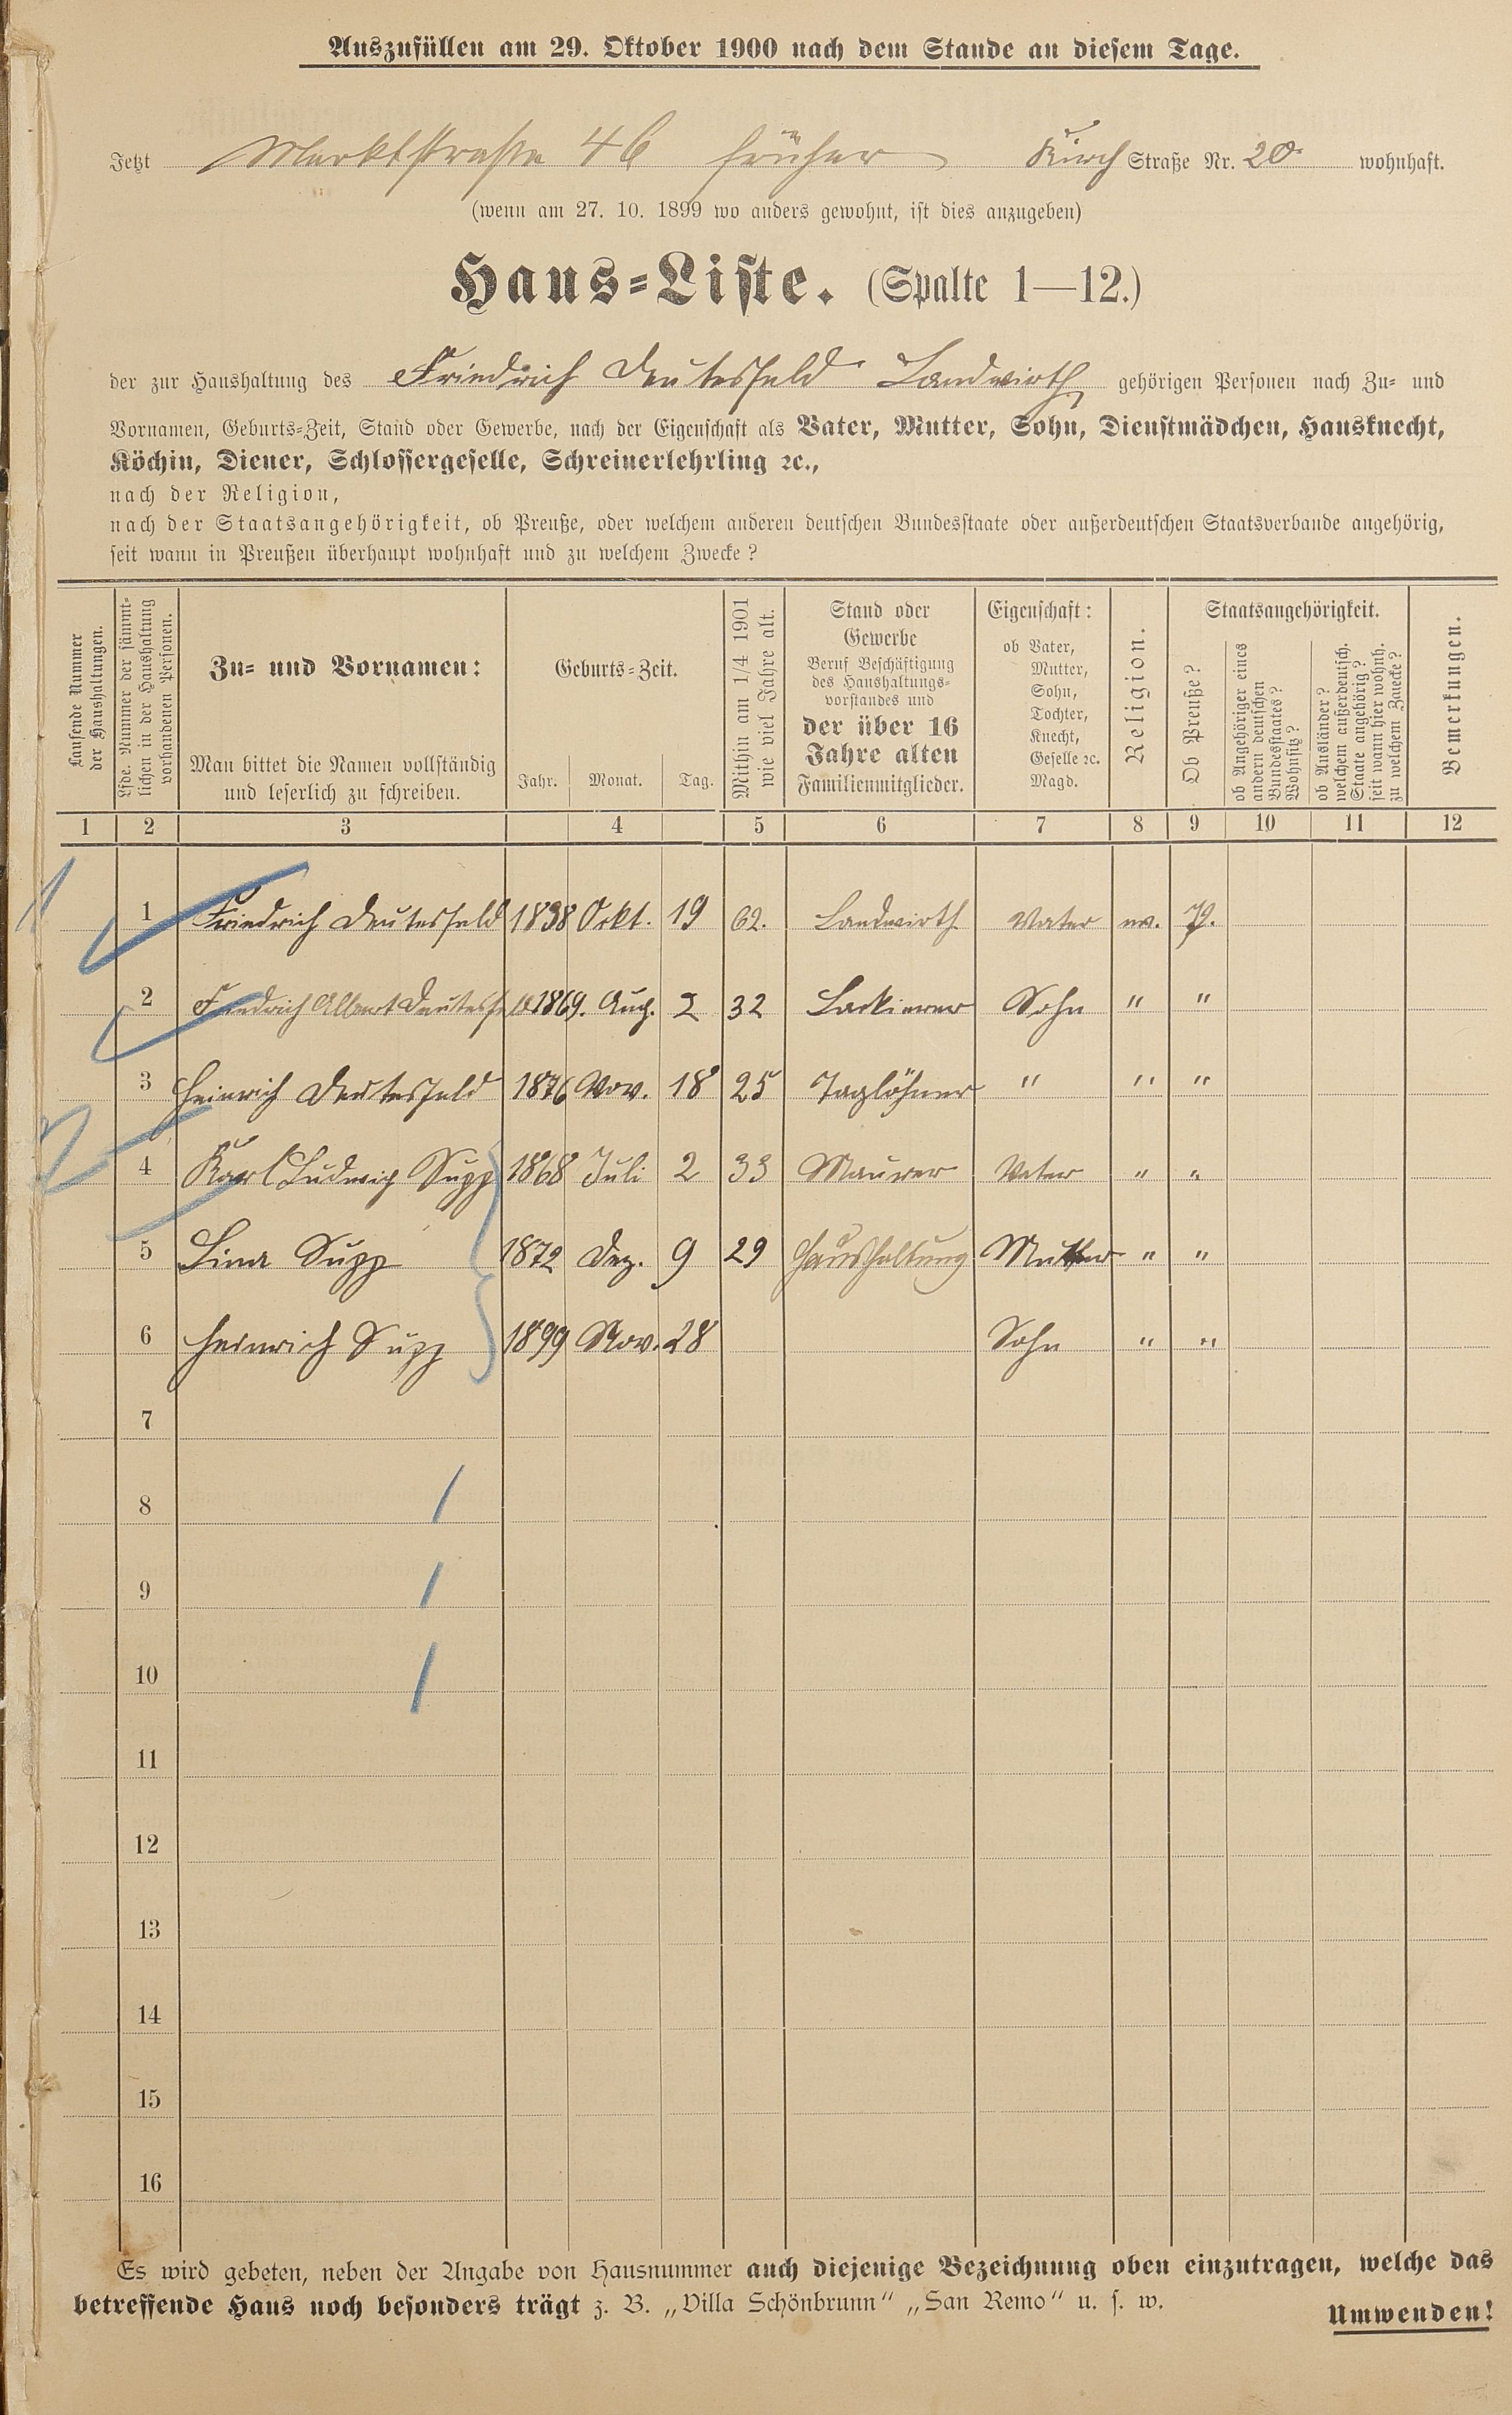 Auszufüllen am 29. Oktober 1900 nach dem Stande an diesem Tage.
Jetzt Marktstraße 46 früher Kirch Straße Nr. 20 wohnhaft.
(wenn am 27. 10. 1899 wo anders gewohnt, ist dies anzugeben)
Haus-Liste. (Spalte 1—12.)
der zur Haushaltung des Friedrich Deutesfeld Landwirth gehörigen Personen nach Zu- und
Vornamen, Geburts-Zeit, Stand oder Gewerbe, nach der Eigenschaft als Vater, Mutter, Sohn, Dienstmädchen, Hausknecht,
Köchin, Diener, Schlossergeselle, Schreinerlehrling ꝛc.,
nach der Religion,
nach der Staatsangehörigkeit, ob Preuße, oder welchem anderen deutschen Bundesstaate oder außerdeutschen Staatsverbande angehörig,
seit wann in Preußen überhaupt wohnhaft und zu welchem Zwecke?
Laufende Nummer
der Haushaltungen.
Lfde. Nummer der sämmt-
lichen in der Haushaltung
vorhandenen Personen.
Zu- und Vornamen:
Man bittet die Namen vollständig
und leserlich zu schreiben.
Geburts-Zeit.
Jahr. Monat. Tag.
Mithin am 1/4 1901
wie viel Jahre alt.
Stand oder
Gewerbe
Beruf Beschäftigung
des Haushaltungs-
vorstandes und
der über 16
Jahre alten
Familienmitglieder.
Eigenschaft:
ob Vater,
Mutter,
Sohn,
Tochter,
Knecht,
Geselle ꝛc.
Magd.
Religion.
Staatsangehörigkeit.
Ob Preuße?
ob Angehöriger eines
andern deutschen
Bundesstaates?
Wohnsitz?
ob Ausländer?
welchem außerdeutsch.
Staate angehörig?
seit wann hier wohnh.
zu welchem Zwecke?
Bemerkungen.
1 2 3 4 5 6 7 8 9 10 11 12
1 Friedrich Deutesfeld 1838 Orkt. 19 62. Landwirth Vater ev. P.
2 Friedrich Albert Deutesfeld 1869. Aug. 2 32 Lackierer Sohn " "
3 Heinrich Deutesfeld 1876 Nov. 18 25 Taglöhner " " "
4 Karl Ludwig Supp 1868 Juli 2 33 Maurer Vater " "
5 Lina Supp 1872 Dez. 9 29 Haushaltung Mutter " "
6 Heinrich Supp 1899 Nov. 28 Sohn " "
7
8
9
10
11
12
13
14
15
16
Es wird gebeten, neben der Angabe von Hausnummer auch diejenige Bezeichnung oben einzutragen, welche das
betreffende Haus noch besonders trägt z. B. „Villa Schönbrunn" „San Remo" u. s. w.
Umwenden!